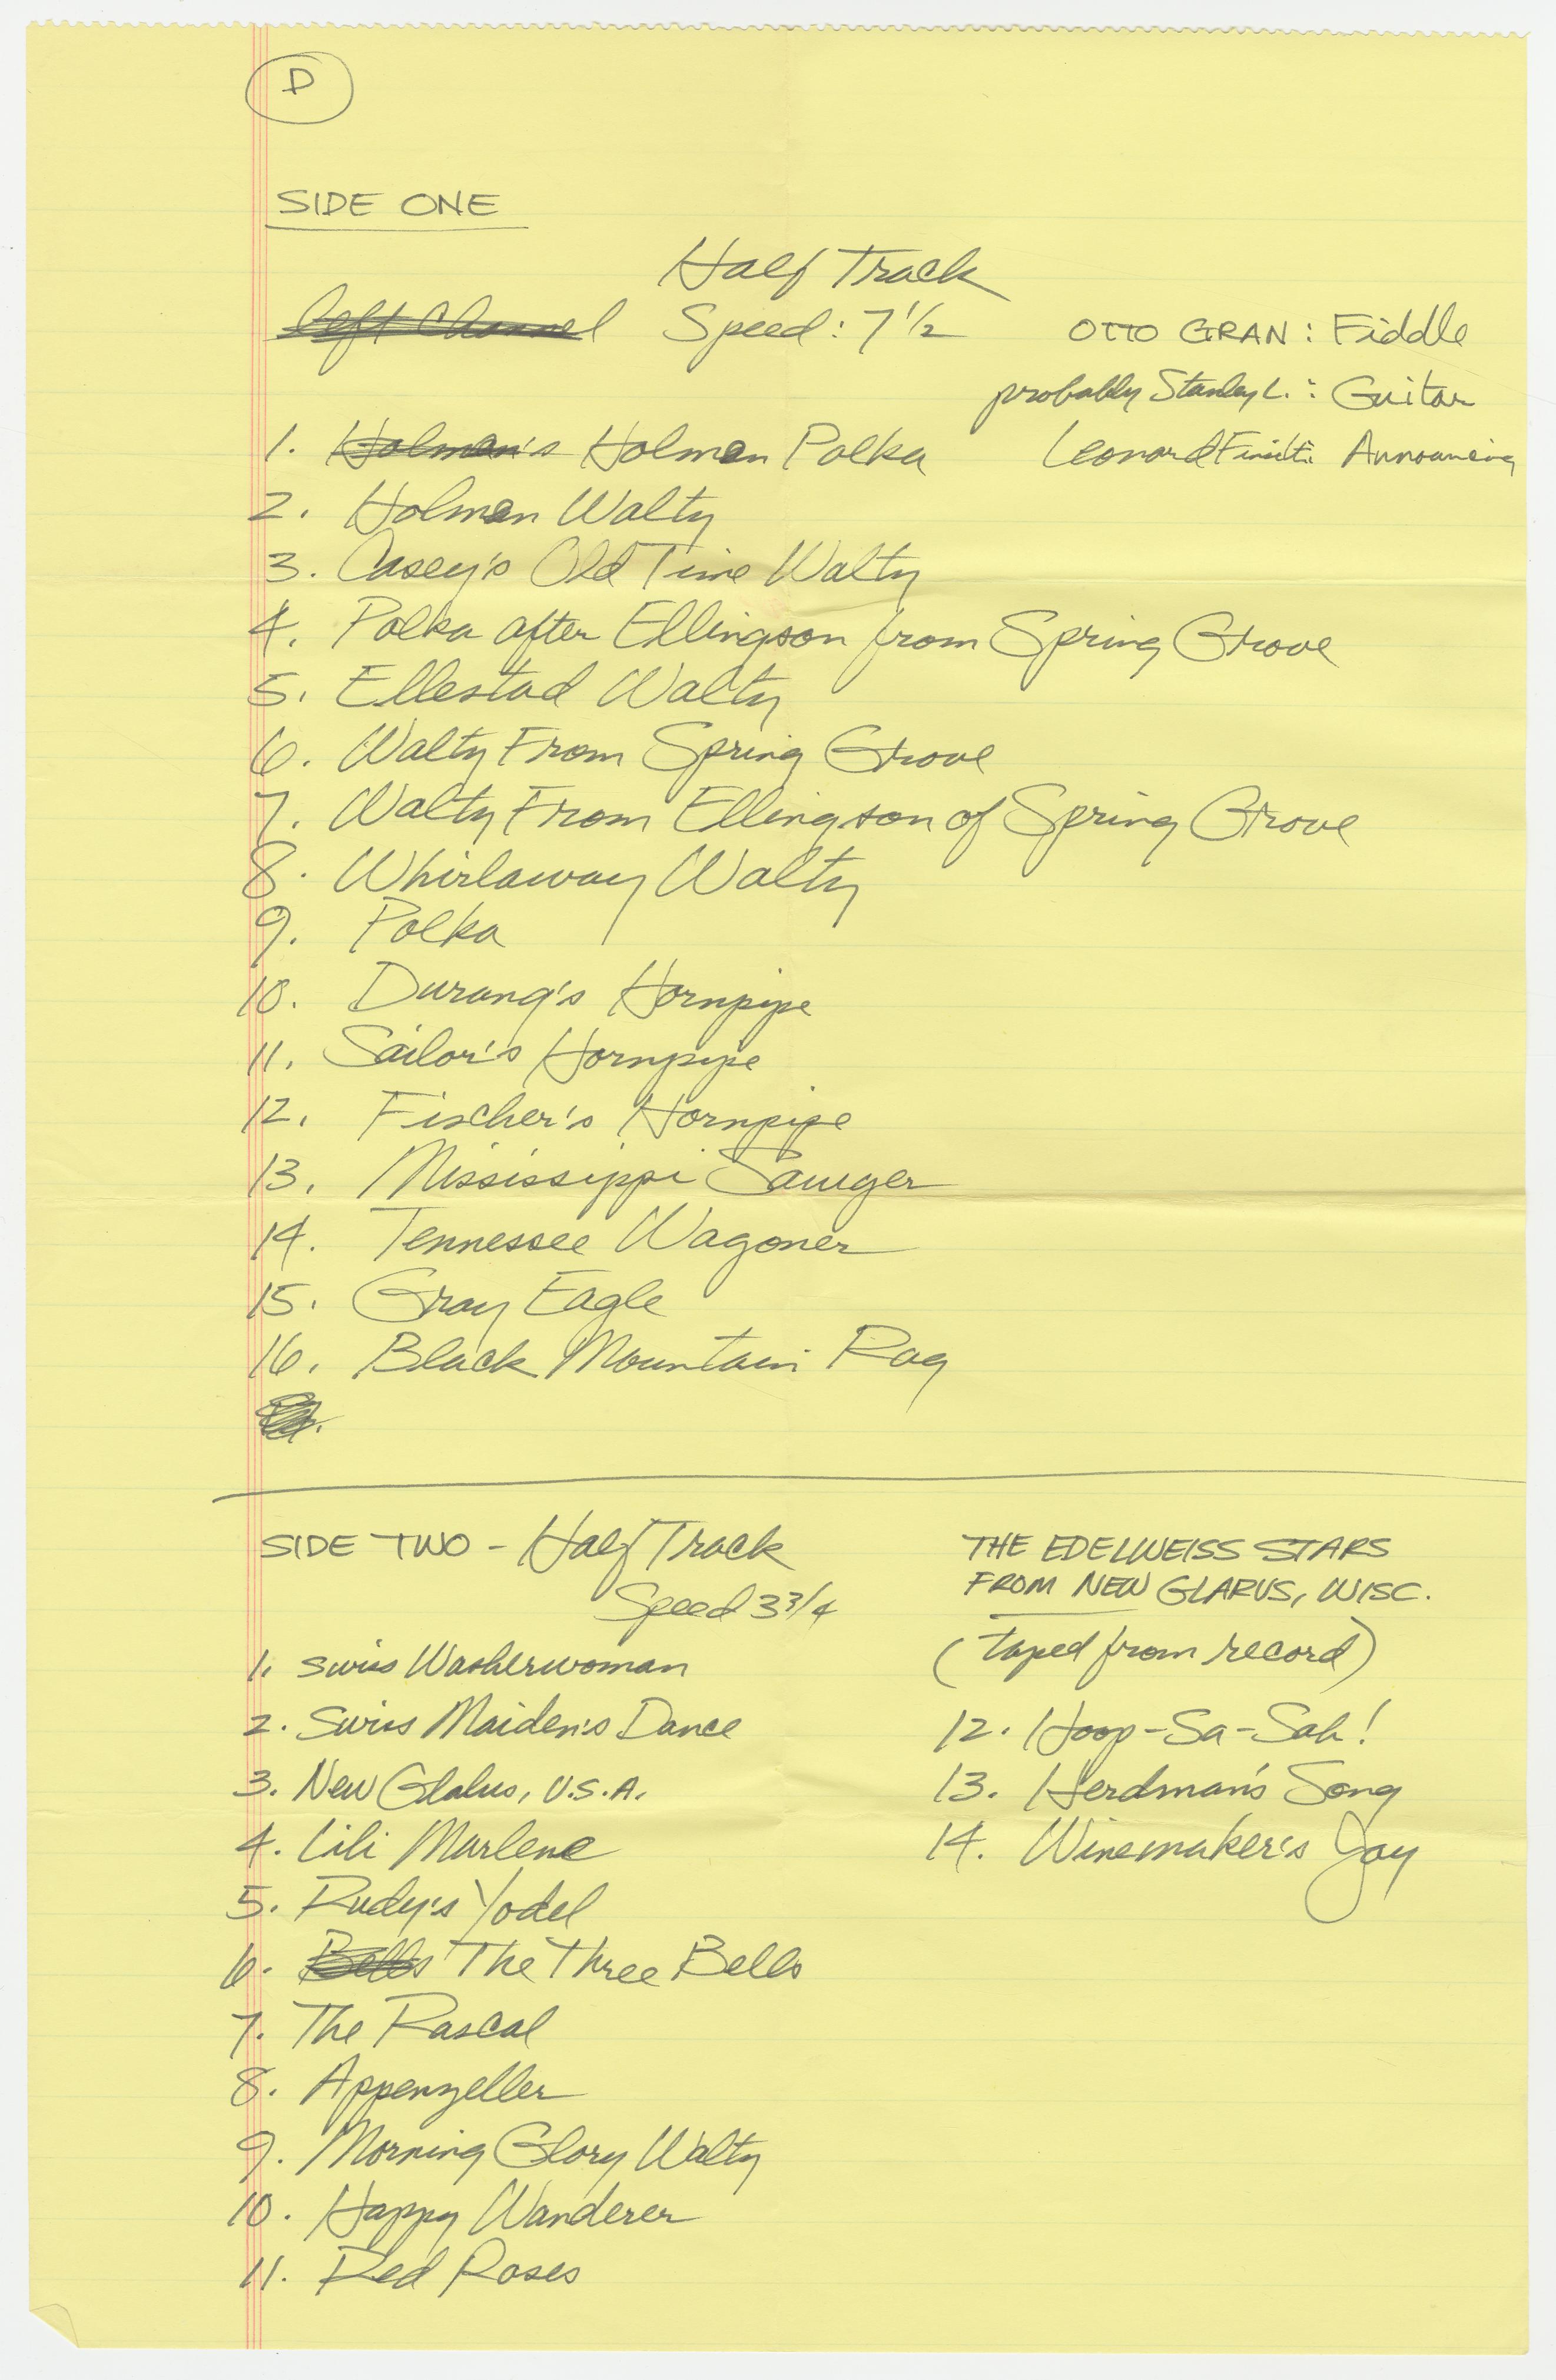 D
SIDE ONE
Half Track
Left Channel Speed: 7 1/2
OTTO GRAN: Fiddle
probably Stanley L.: Guitar
Leonard Finseth: Announcing
1. Holman's Holmen Polka
2. Holmen Waltz
3. Casey's Old Time Waltz
4. Polka after Ellingson from Spring Grove
5. Ellestad Waltz
6. Waltz From Spring Grove
7. Waltz From Ellingson of Spring Grove
8. Whirlaway Waltz
9. Polka
10. Durang's Hornpipe
11. Sailor's Hornpipe
12. Fischer's Hornpipe
13. Mississippi Sawyer
14. Tennessee Wagoner
15. Gray Eagle
16. Black Mountain Rag
SIDE TWO - Half Track
Speed 3 3/4
THE EDELWEISS STARS
FROM NEW GLARUS, WISC.
(taped from record)
1. Swiss Washerwoman
2. Swiss Maiden's Dance
3. New Glalus, U.S.A.
4. Lili Marlene
5. Rudy's Yodel
6. Bells The Three Bells
7. The Rascal
8. Appenzeller
9. Morning Glory Waltz
10. Happy Wanderer
11. Red Roses
12. Hoop-Sa-Sah!
13. Herdman's Song
14. Winemaker's Joy